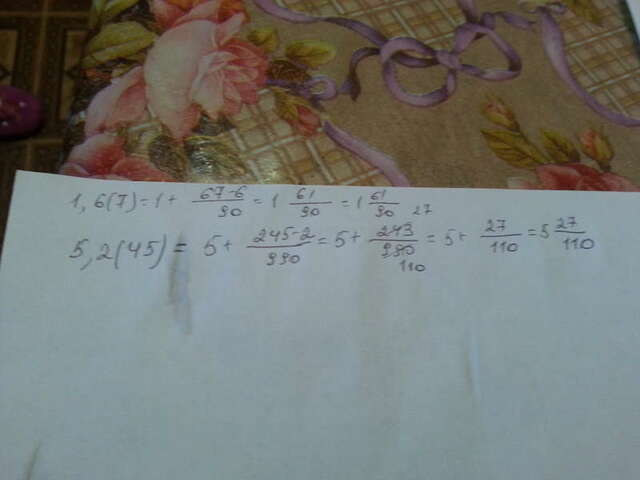 1,6(7) = 1 + 67-6/90 = 1 61/90 = 1 61/90
5,2(45) = 5 + 245-2/990 = 5 + 243/990 27/110 = 5 + 27/110 = 5 27/110